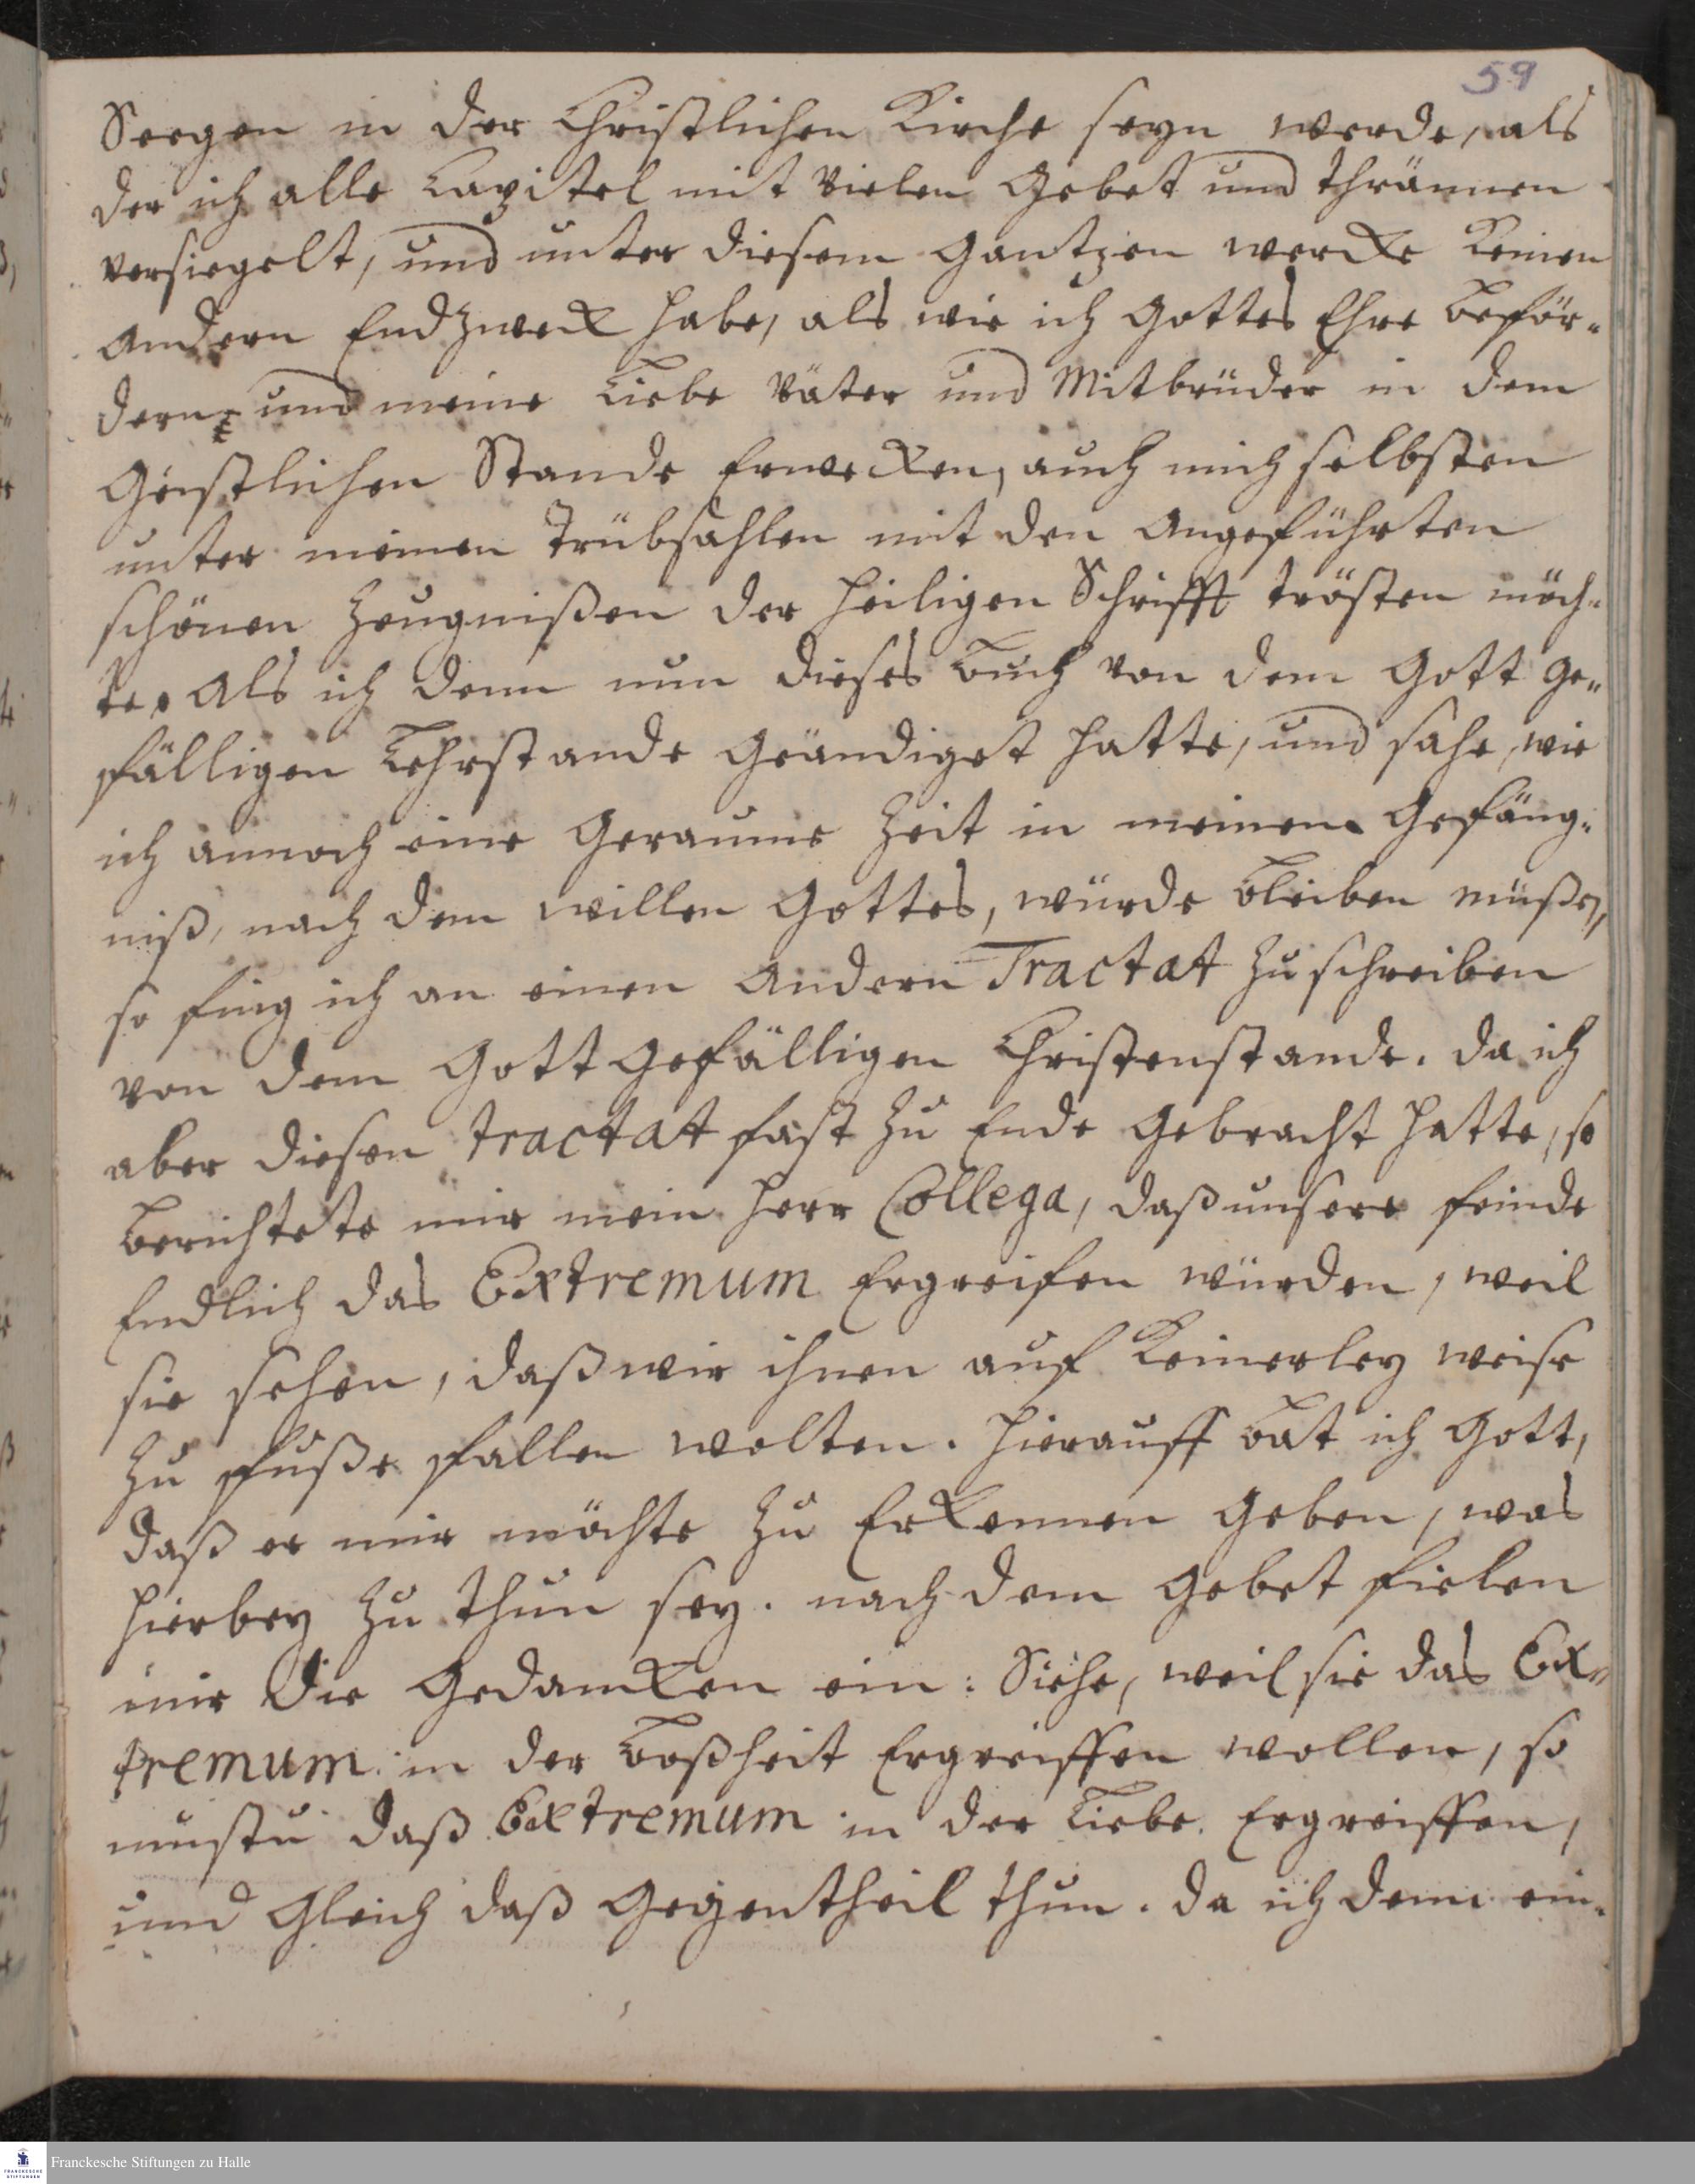 59
Seegen in der Christlichen Kirche seyn werde, als
der ich alle Capitel mit vielen Gebet und thrännen
versiegelt, und unter diesem Gantzen wercke keinen
andern Endzweck habe, als wie ich Gottes Ehre beför-
dern und meine Liebe Väter und Mitbrüder in dem
Geistlichen Stande Erwecken, auch mich selbsten
unter meinen Trübsahlen mit den angeführten
schönen Zeugnißen der heiligen Schrifft trösten möch-
te. Als ich denn nun dieses buch von dem Gott ge-
fälligen Lehrstande geändiget hatte, und sahe, wie
ich annoch eine Geraume Zeit in meinem Gefäng-
niß, nach dem willen Gottes, würde bleiben müßen,
so fing ich an einen andern Tractat zu schreiben
von dem Gott gefälligen Christenstande. da ich
aber diesen tractat fast zu Ende gebracht hatte, so
berichtete mir mein Herr Collega, daß unsere feinde
Endlich das Extremum Ergreifen würden, weil
sie sehen, daß wir ihnen auf keinerley weise
zu fuße fallen wolten. Hierauff bat ich Gott,
daß er mir möchte zu Erkennen geben, was
hierbey zu thun sey. nach dem gebet fielen
mir die Gedancken ein: Siehe, weil sie das Ex-
tremum in der boßheit Ergreiffen wollen, so
mustu daß Extremum in der Liebe Ergreiffen,
und Gleich daß Gegentheil thun. da ich denn ein-
Franckesche Stiftungen zu Halle
FRANCKESCHE
STIFTUNGEN